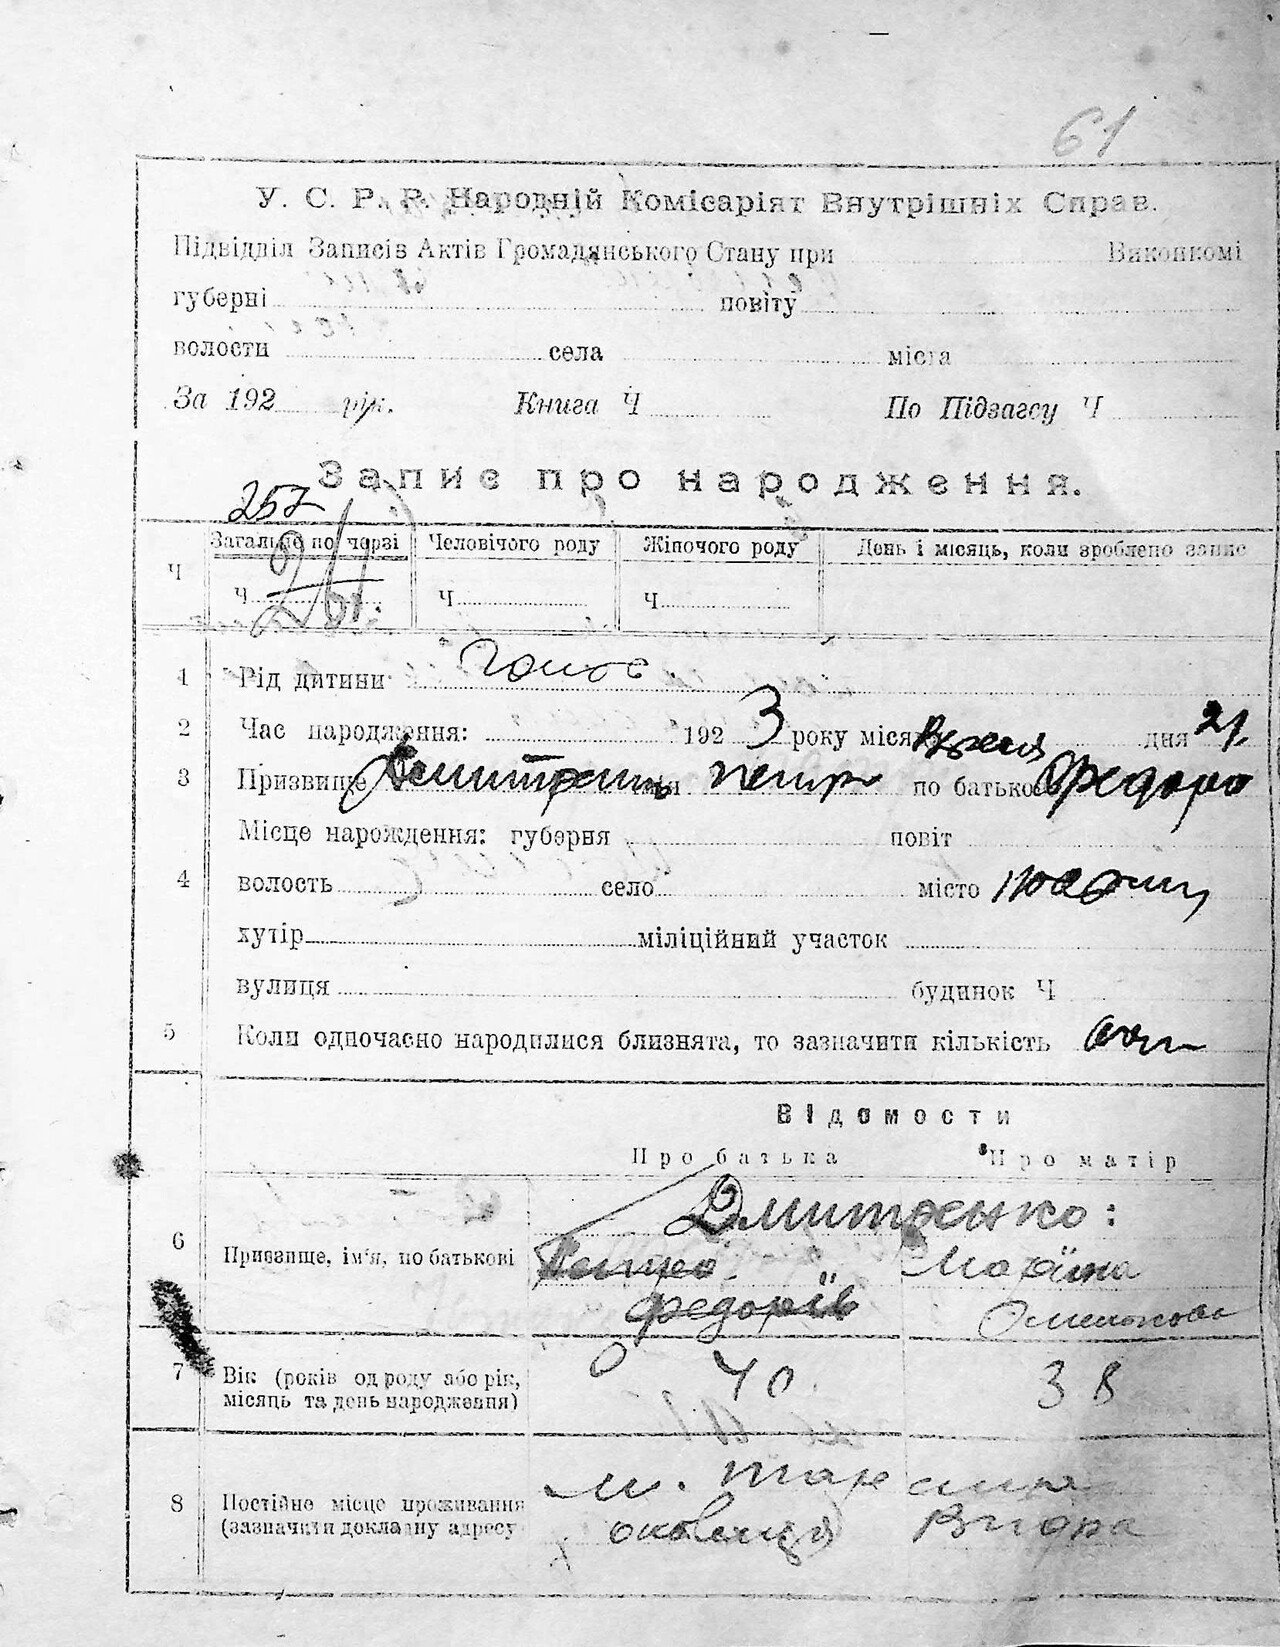 61
У. С. Р. Р. Народній Комісаріят Внутрішніх Справ.
Підвідділ Записів Актів Громадянського Стану при Виконкомі
губерні повіту
волости села міста
За 192 рік. Книга Ч По Підзагсу Ч
Запис про народження.
257
Загально по черзі Человічого роду Жіночого роду День і місяць, коли зроблено запис
Ч Ч Ч Ч
1 Рід дитини
2 Час народження: 1923 року міся дня 21.
3 Призвище по батькові Федоро
Місце нарождення: губерня повіт
4 волость село місто
хутір міліційний участок
вулиця будинок Ч
5 Коли одночасно народилися близнята, то зазначити кількість
Відомости
Про батька Про матір
Дмитренко:
6 Призвище, ім'я, по батькові Петро
Федорів
7 Вік (років од роду або рік, 40 38
місяць та день народження)
8 Постійне місце проживання м.
(зазначити докладну адресу